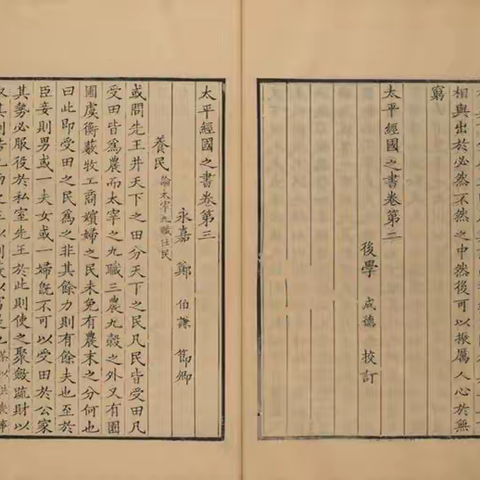 相與出於必然不然之中然後可以振厲人心於無
窮
太平經國之書卷第二
後學 成德 校訂
太平經國之書卷第三
永嘉 鄭 伯謙 節卿
養民 論太宰九職任民
或問先王井天下之田分天下之民凡民皆受田凡
受田皆為農而太宰之九職三農九穀之外又有園
圃虞衡藪牧工商嬪婦之民未免有農末之分何也
曰此即受田之民為之非其餘力則有餘夫也至於
臣妾則男或一夫女或一婦旣不可以受田於公家
其勢必服役於私室先王於此則使之聚斂疏財以